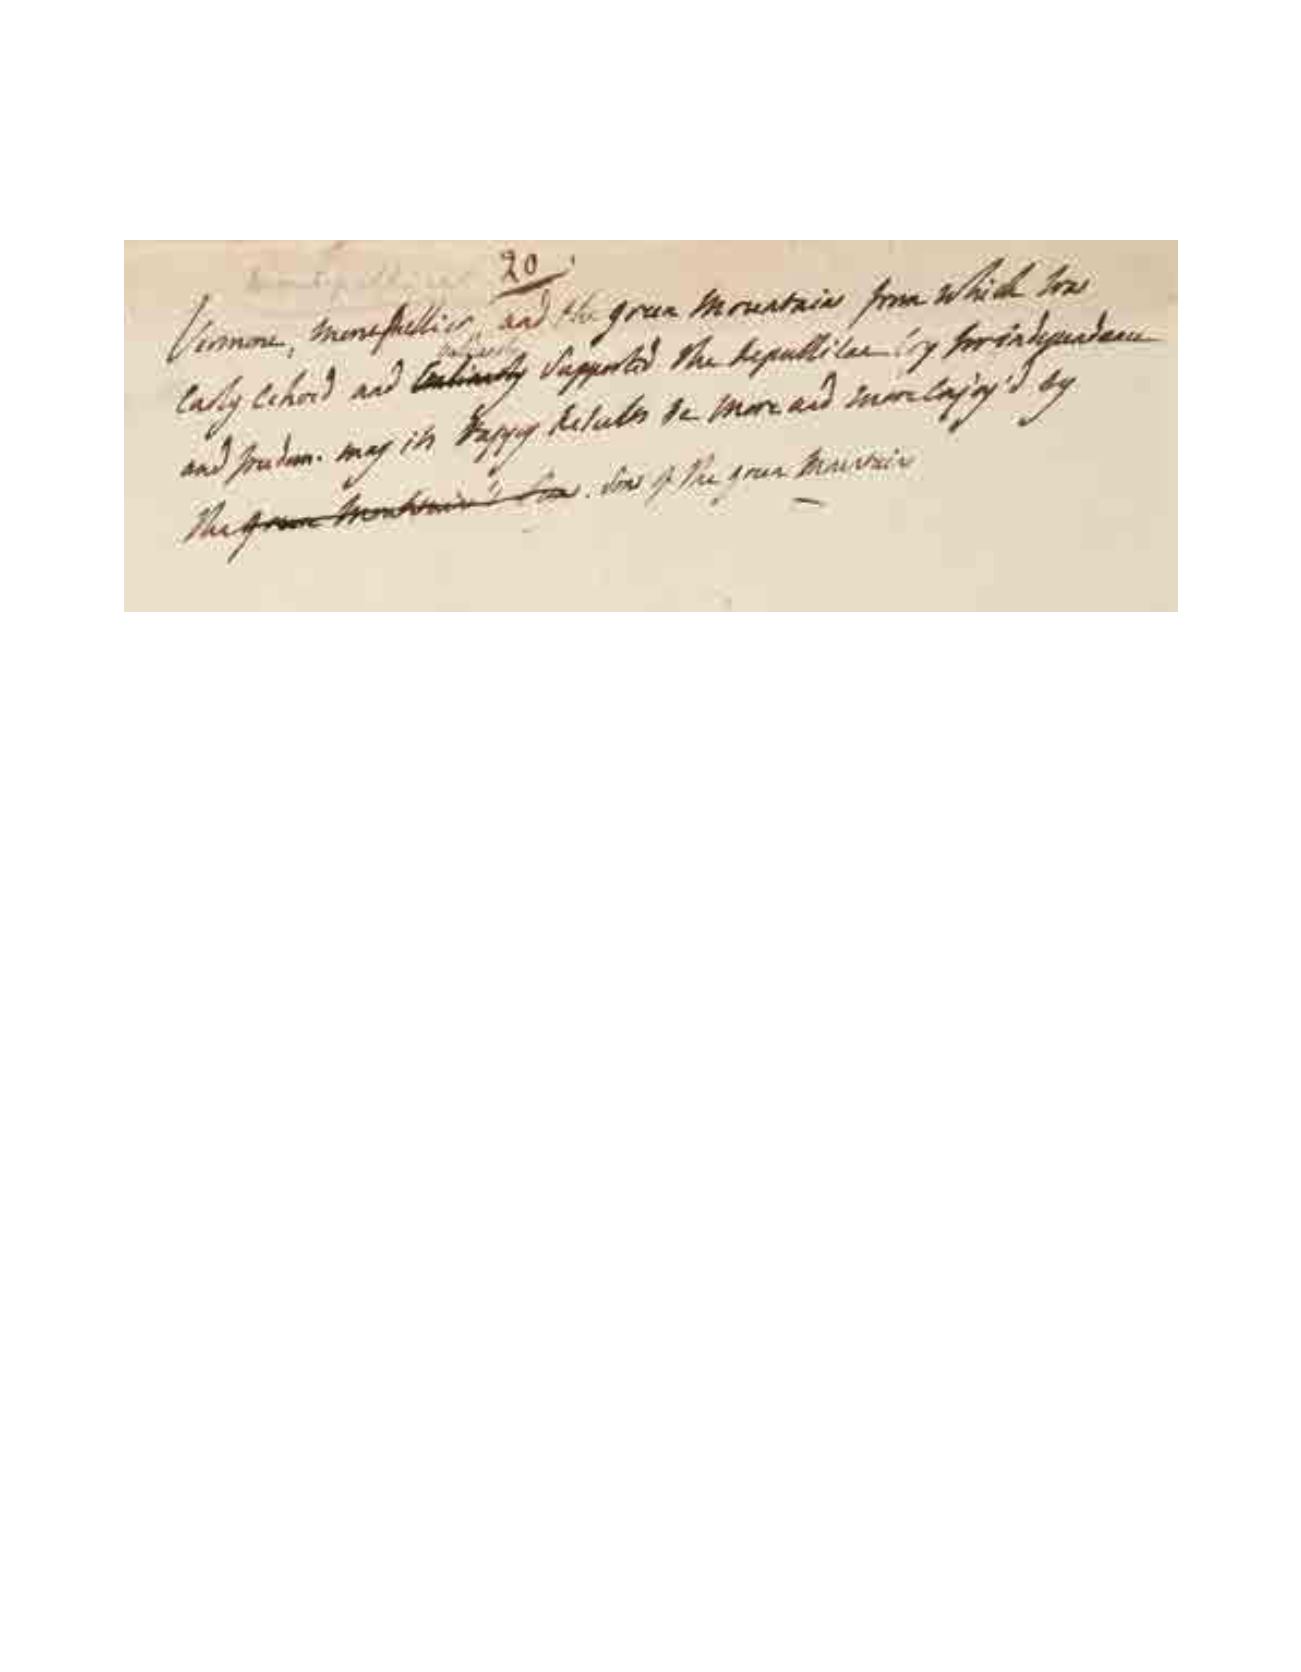 20
Vermont, Montpellier, and the green Mountain from which was
Early Echoed and supported the Republican Cry for independance
and freedom. may its Happy Results be more and more Enjoy'd by
the green Mountain's Sons. Sons of the green Mountain